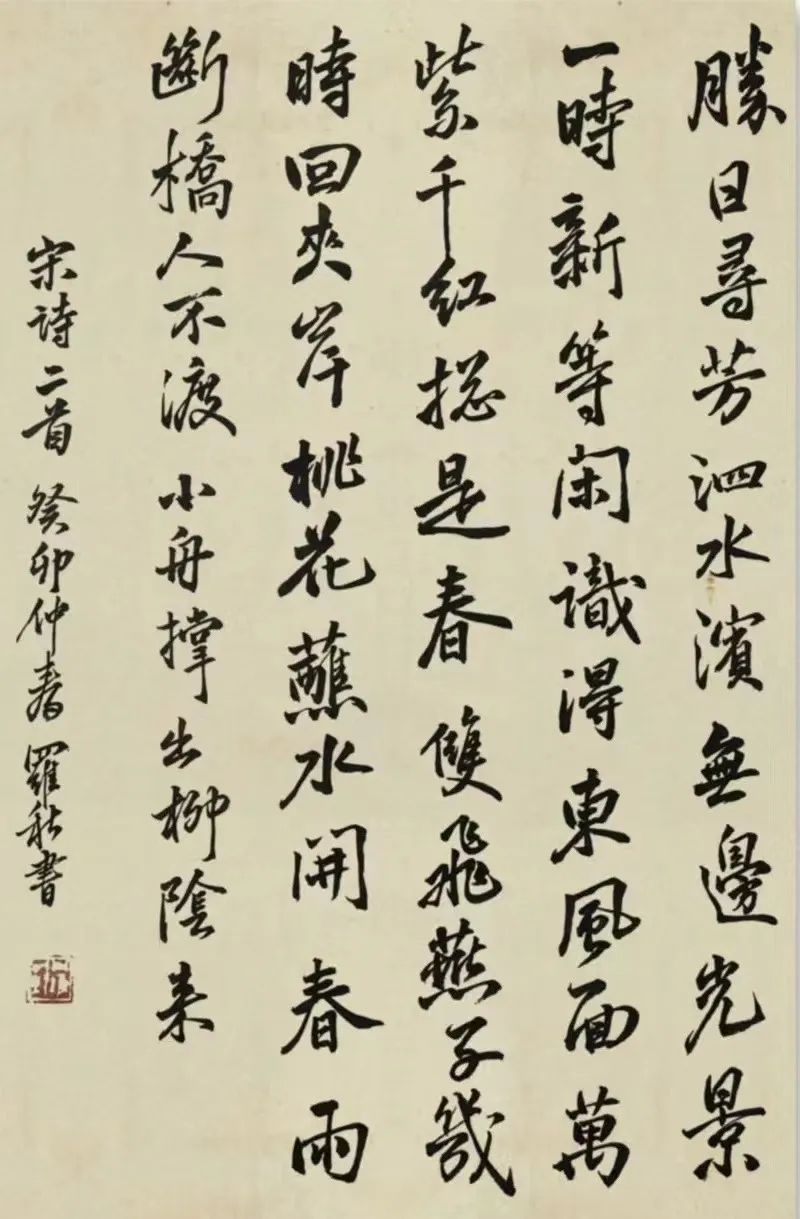 勝日尋芳泗水濱無邊光景
一時新等閑識得東風面萬
紫千紅捴是春雙飛燕子幾
時回夾岸桃花蘸水開春雨
斷橋人不渡小舟撐出柳陰来
宋詩二首癸卯仲春羅秋書